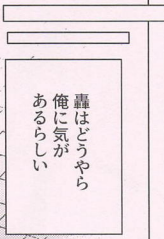 轟はどうやら
俺に気が
あるらしい